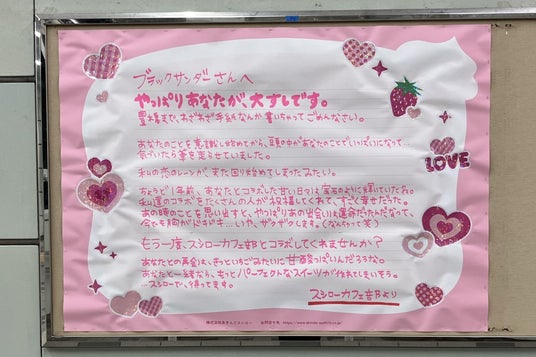 ブラックサンダーさんへ
やっぱりあなたが、大すしです。
豊橋まで、わざわざ手紙なんか書いちゃってごめんなさい。
あなたのことを意識し始めてから、頭の中があなたのことでいっぱいになって…
気づいたら筆を走らせていました。
私の恋のレーンが、また回り始めてしまったみたい。
ちょうど1年前、あなたとコラボした甘い日々は宝石のように輝いていたわ。
私達のコラボをたくさんの人が祝福してくれて、すごく幸せだった。
あの時のことを思い出すと、やっぱりあの出会いは運命だったんだなって、
今でも胸がドキドキ…いや、ザクザクします。(なんちゃって笑)
もう一度、スシローカフェ部とコラボしてくれませんか?
あなたとの再会は、きっといちごみたいに甘酸っぱいんだろうな。
あなたと一緒なら、もっとパーフェクトなスイーツが作れてしまいそう。
…スシローで、待ってます。
スシローカフェ部より
LOVE
株式会社あきんどスシロー